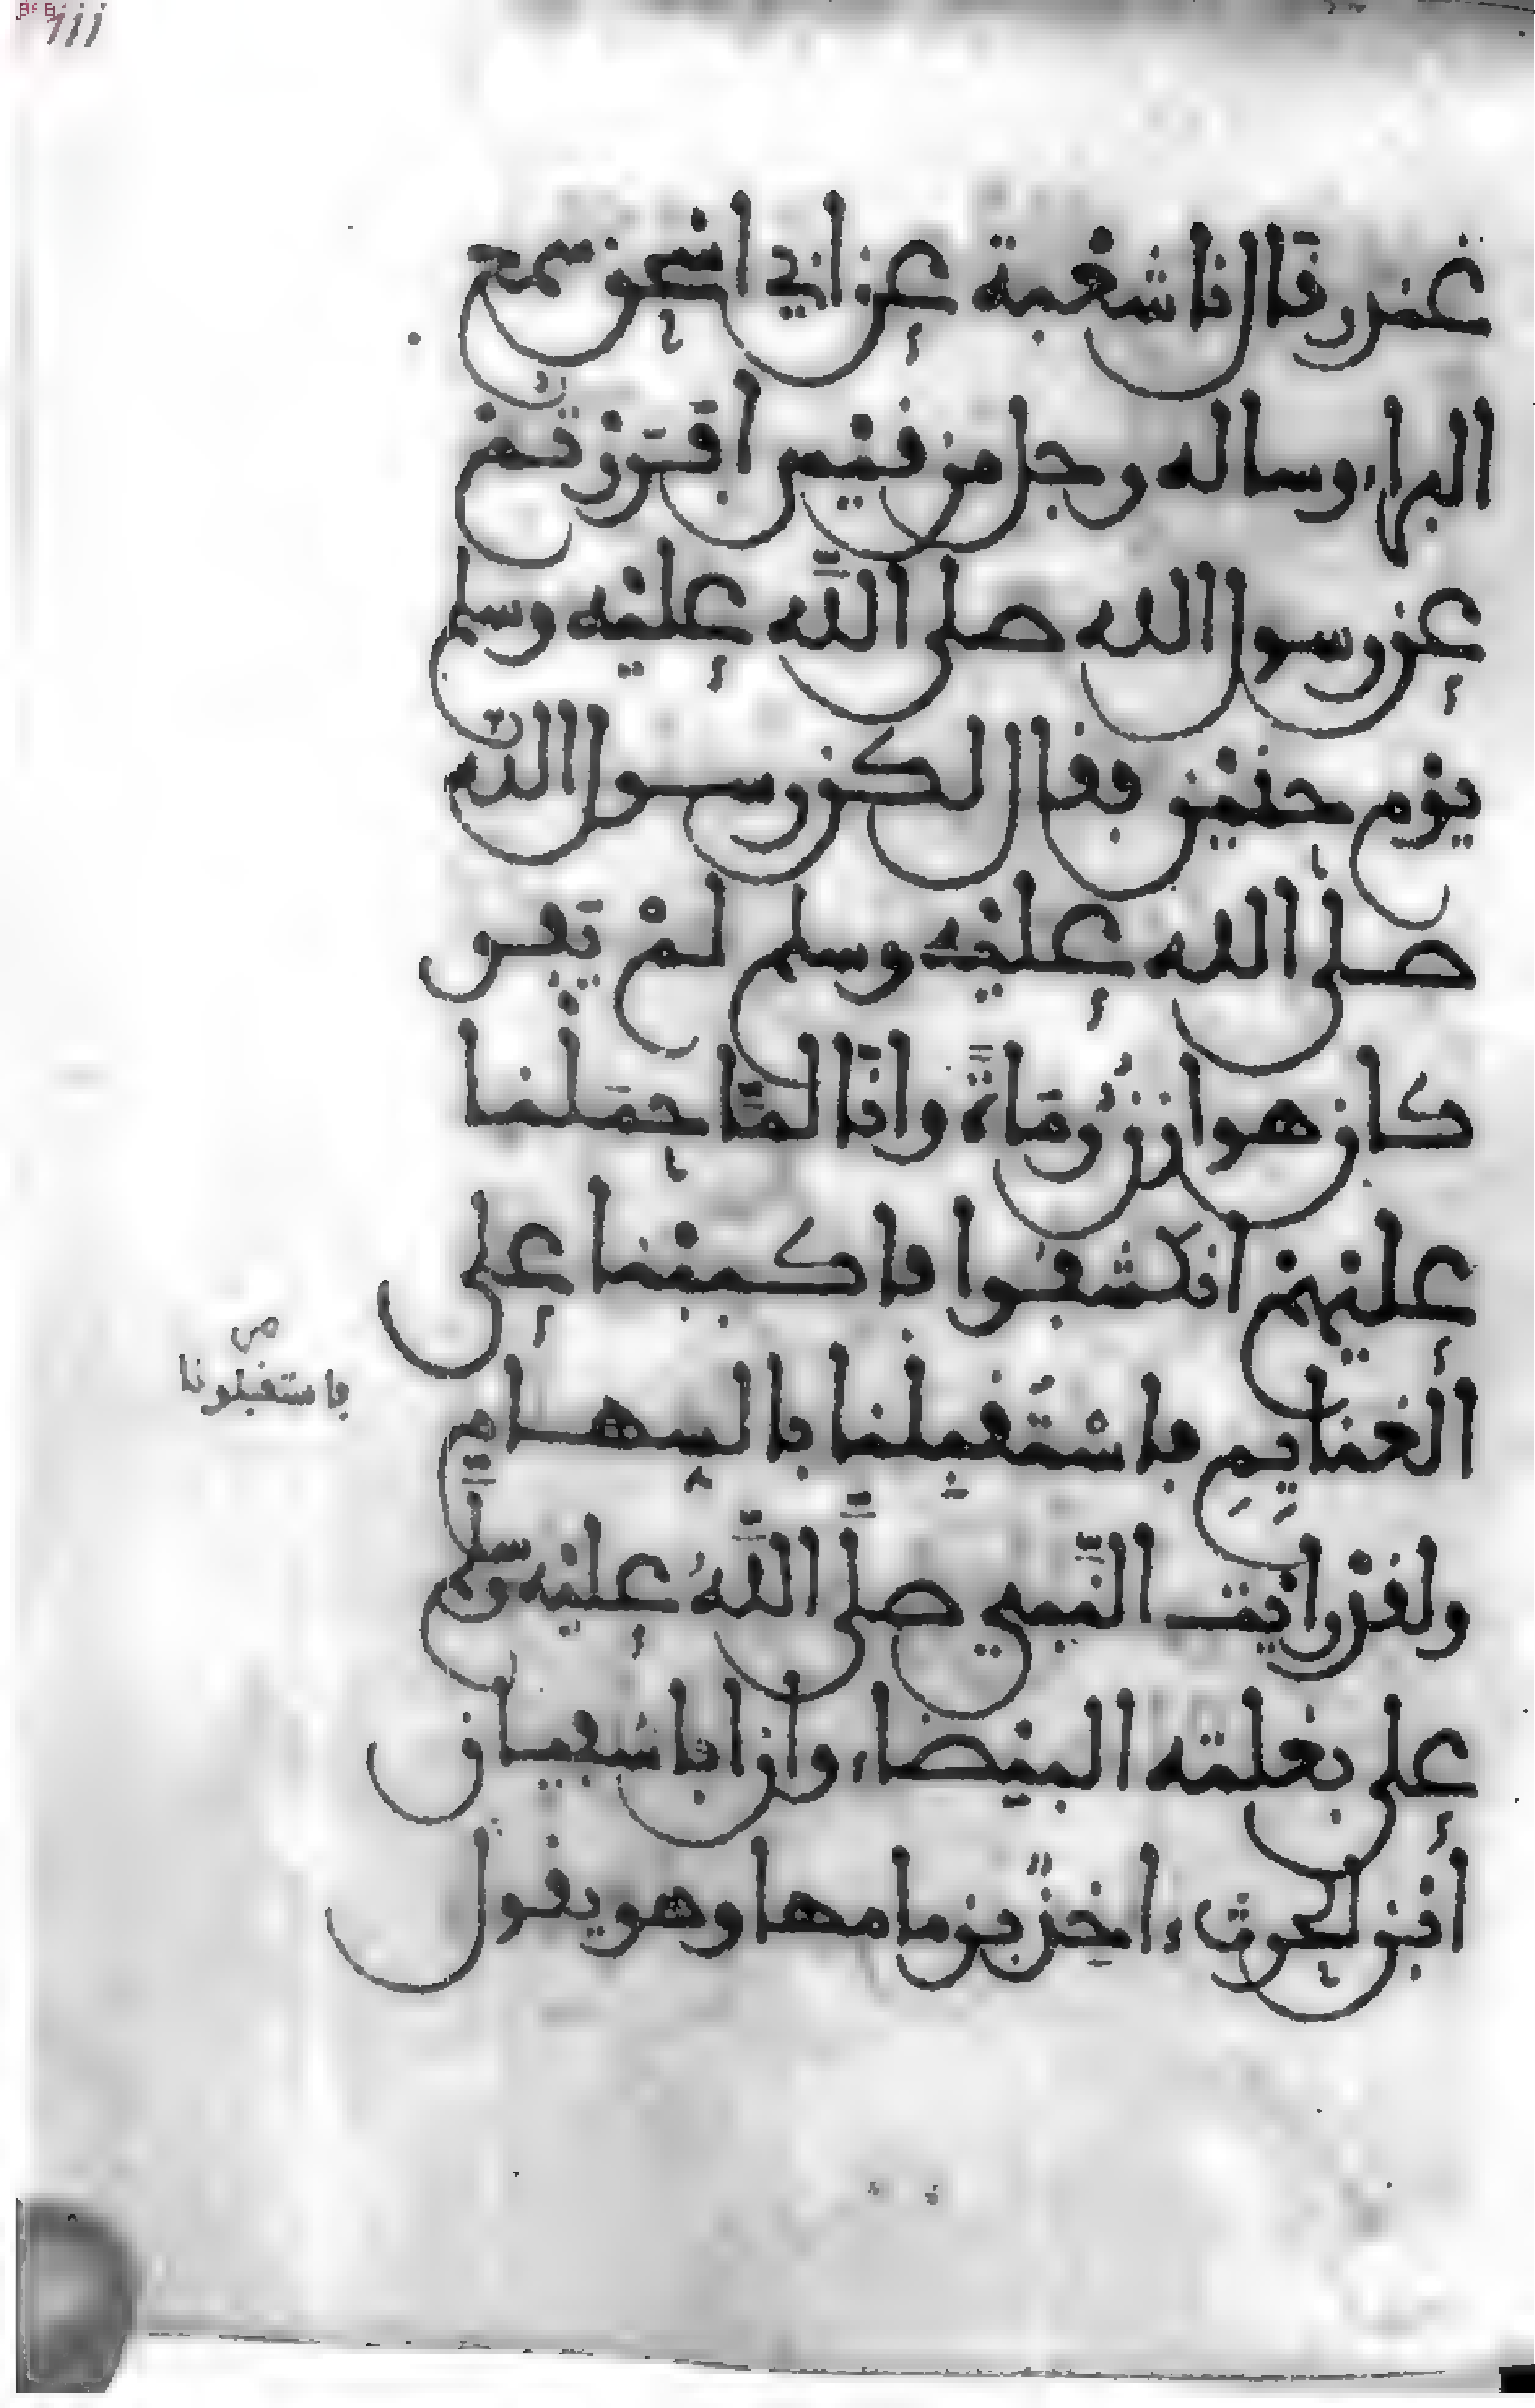 غندر قال نا شعبة عن ابي اسحق سمع
البراء وساله رجل من قيس افررتم
عن رسول الله صلى الله عليه وسلم
يوم حنين فقال لكن رسول الله
صلى الله عليه وسلم لم يفر
كان هوازن رُمَاةً وانَّا لمَّا حمَلْنا
عليهم انكشفوا فاكببنا على
الغنايِمِ فاسْتُقبِلْنا بالسِهامِ
من
فاستقبلونا
ولقد رايت النَّبي صلَّى اللَّهُ عليه وسلم
على بغلته البيضاء وان ابا سُفيان
ابن الحرث ءاخِذٌ بزمامها وهو يقول